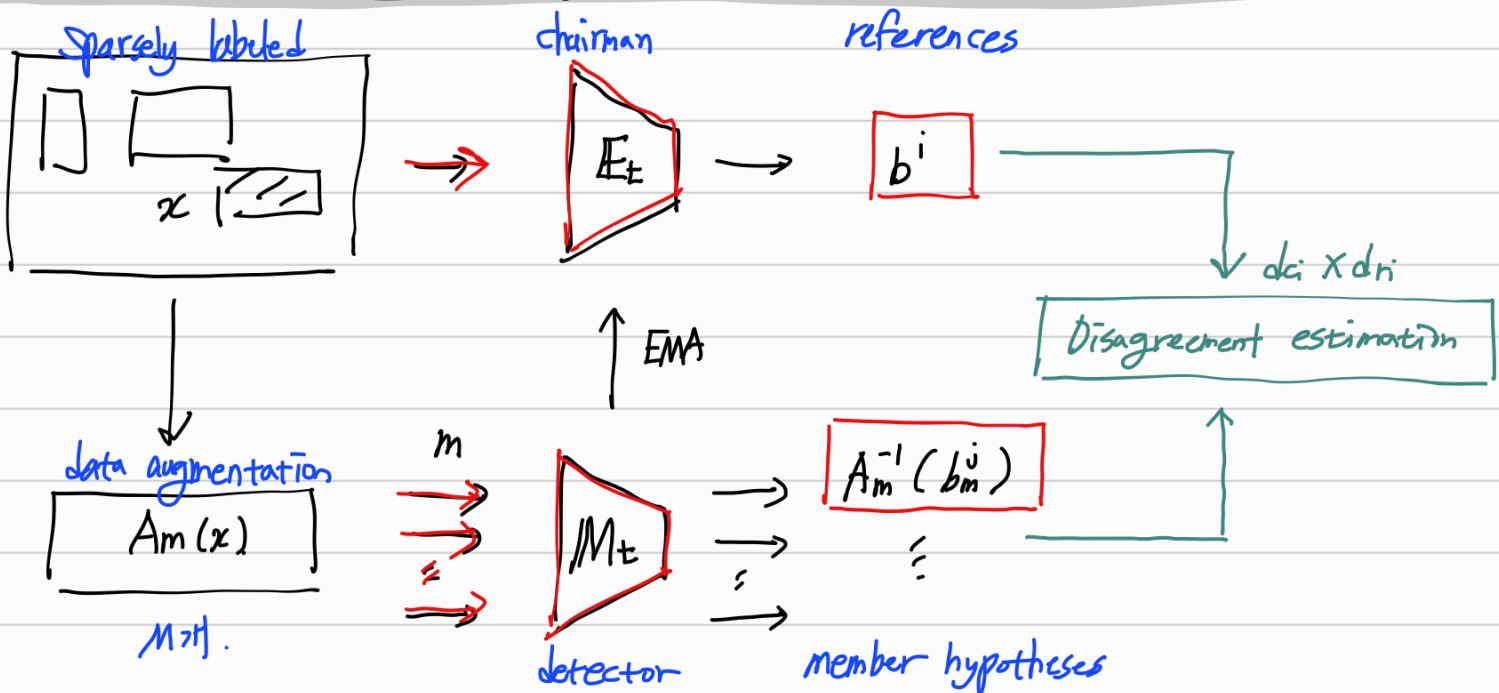 sparsely labeled
chairman
references
x
E_t
b^i
dci × dri
EMA
Disagreement estimation
m
data augmentation
A_m(x)
M_t
A_m^{-1}(b_m^j)
detector
member hypotheses